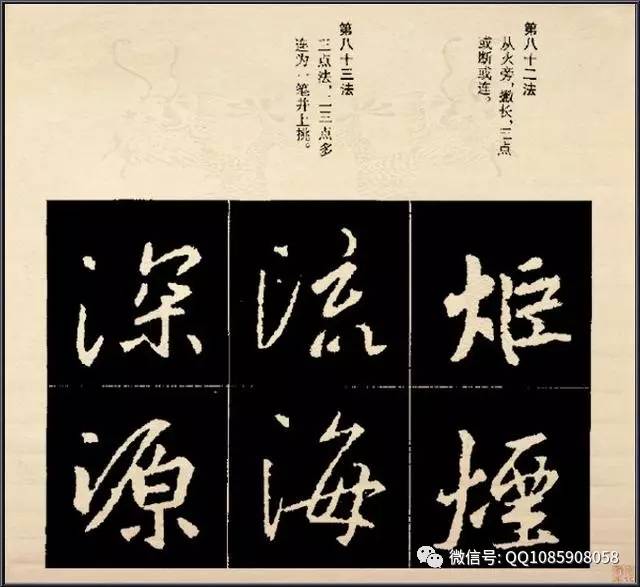 第八十二法
从火旁，撇长，三点
或断或连。
第八十三法
三点法，二三点多
连为一笔并上挑。
炬
煙
流
海
深
源
微信号: QQ1085908058